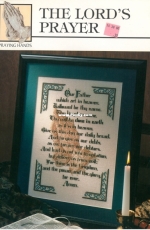 THE LORD'S
PRAYER
PRAYING HANDS
Our Father
which art in heaven,
Hallowed be thy name.
Thy will be done in earth
as it is in heaven.
Give us this day our daily bread.
And forgive us our debts,
as we forgive our debtors.
And lead us not into temptation,
but deliver us from evil:
For thine is the kingdom,
and the power, and the glory,
for ever.
Amen.